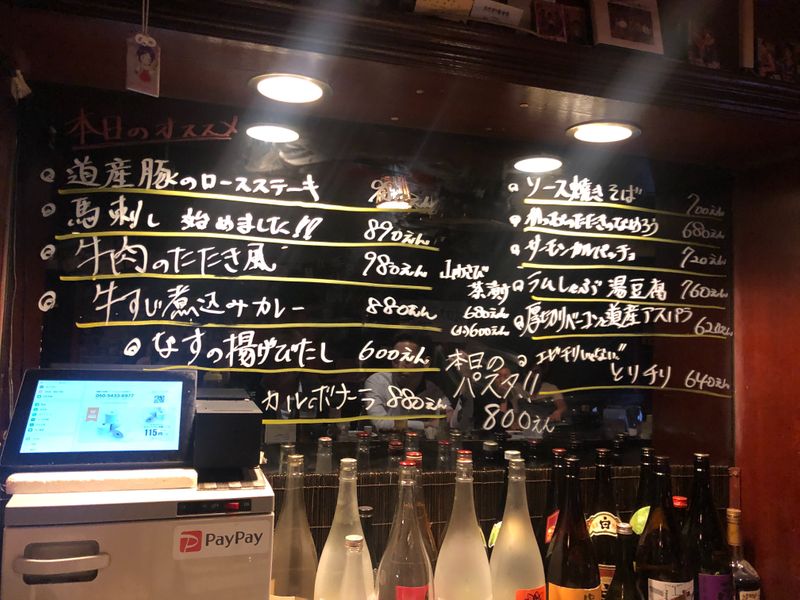 本日のオススメ
道産豚のロースステーキ
馬刺し 始めました!! 890えん
牛肉のたたき風 980えん
牛すじ煮込みカレー 880えん
なすの揚げびたし 600えん
カルボナーラ 880えん
ソース焼きそば 700えん
680えん
サーモンカルパッチョ 720えん
ラムしゃぶ 湯豆腐 760えん
厚切りベーコンと道産アスパラ 620えん
エビチリじゃないよ
とりチリ 640えん
山わさび
680えん
600えん
本日の
パスタ!!
800えん
050-5433-6977
115
PayPay
白